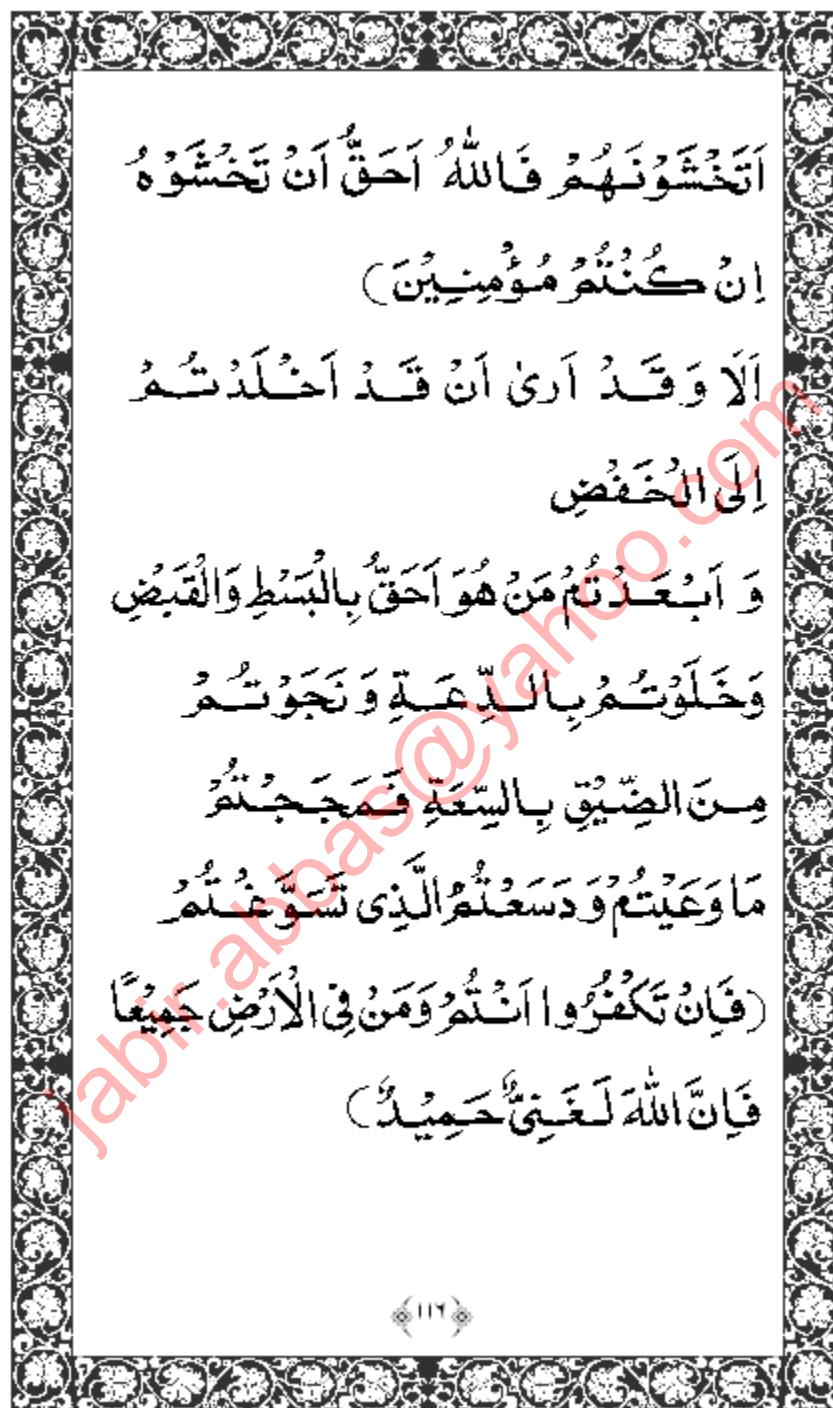 اَتَخْشَوْنَهُمْ فَاللّٰهُ اَحَقُّ اَنْ تَخْشَوْهُ
اِنْ كُنْتُمْ مُؤْمِنِيْنَ)
اَلَا وَ قَدْ اَرىٰ اَنْ قَدْ اَخْلَدْتُمْ
اِلَى الْخَفْضِ
وَ اَبْعَدْتُمْ مَنْ هُوَ اَحَقُّ بِالْبَسْطِ وَالْقَبْضِ
وَخَلَوْتُمْ بِالدِّعَةِ وَ نَجَوْتُمْ
مِنَ الضِّيْقِ بِالسِّعَةِ فَمَجَجْتُمْ
مَا وَعَيْتُمْ وَ دَسَعْتُمُ الَّذِى تَسَوَّغْتُمْ
(فَاِنْ تَكْفُرُوا اَنْتُمْ وَمَنْ فِى الْاَرْضِ جَمِيْعًا
فَاِنَّ اللّٰهَ لَغَنِىٌّ حَمِيْدٌ)
۱۱۶
jabir.abbas@yahoo.com